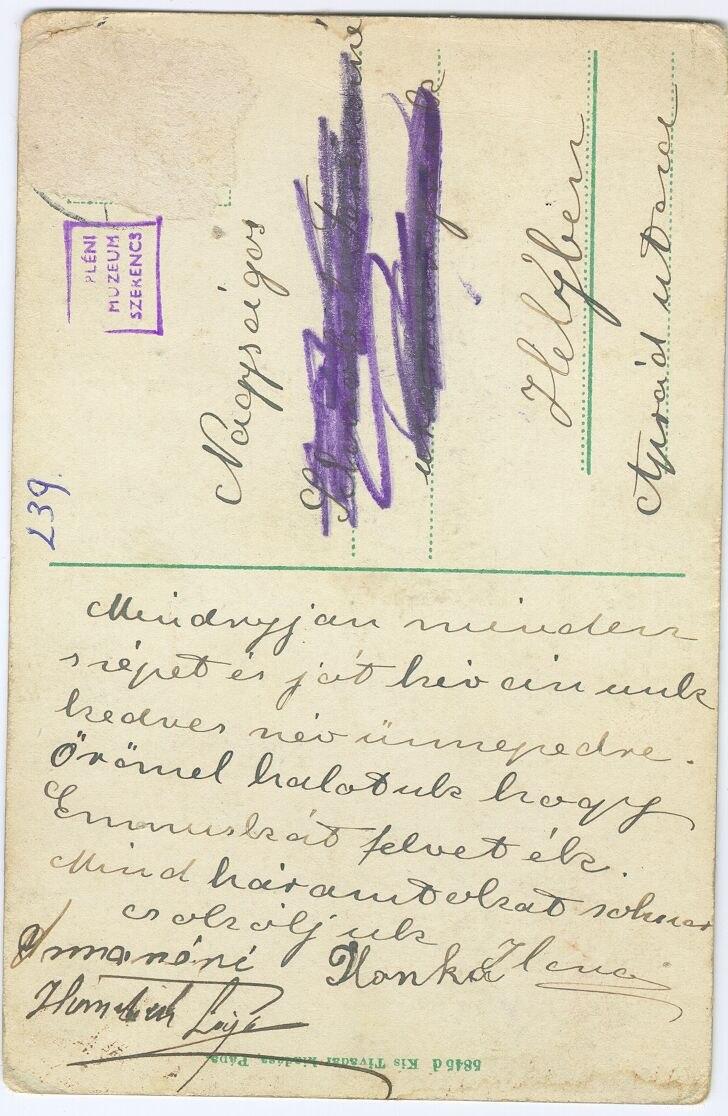 PLÉNI
MUZEUM
SZERENCS
239.
Nagyságos
Helyben
Árpád utca
Mindnyjan minden
szépet és jót kivánunk
kedves név ünnepedre.
Örömel halotuk hogy
Emmuskát felveték.
Mind háramtokat sokszor
csokoljuk
Irmanéni Ilonka Ilona
Lajos
5845d Kis Tivadar kiadása, Pápa.